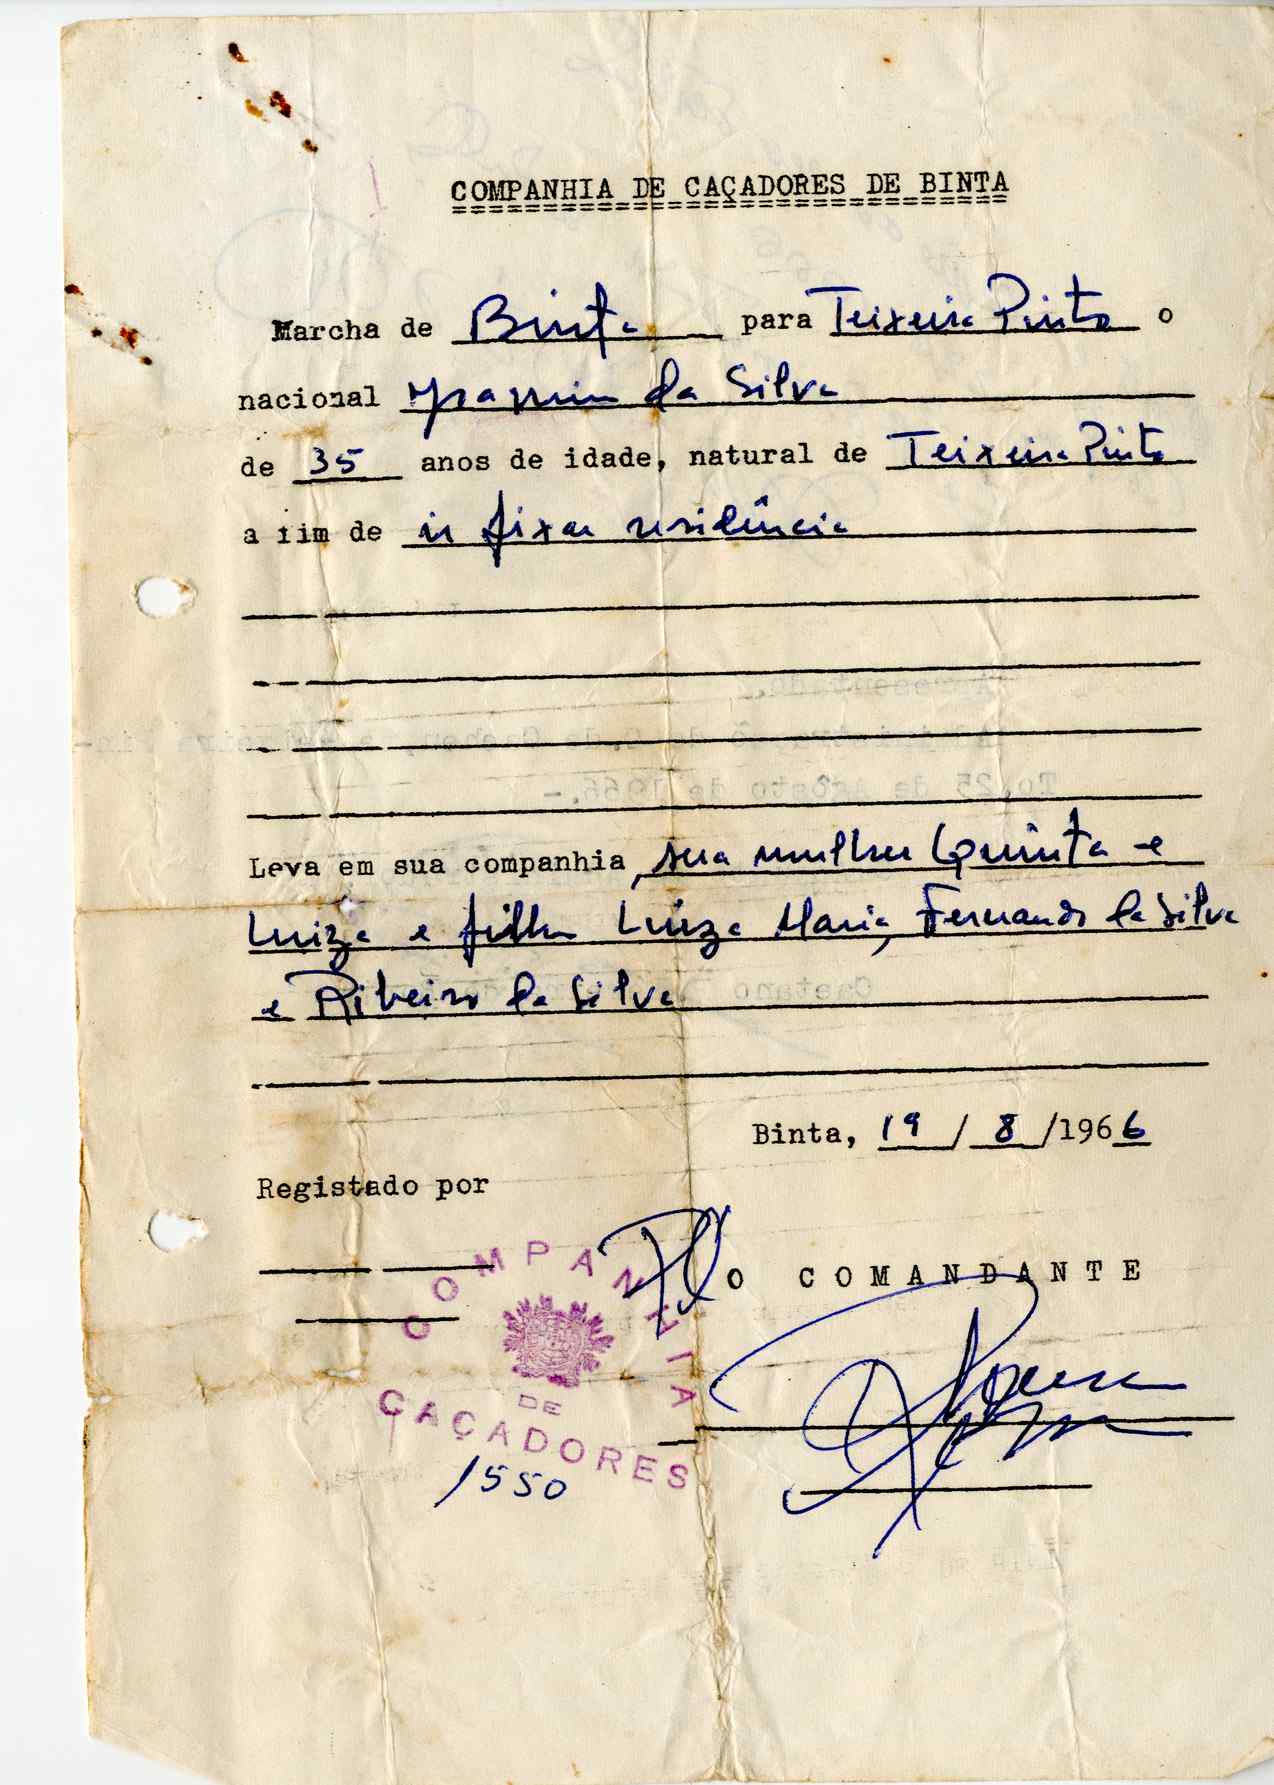 COMPANHIA DE CAÇADORES DE BINTA
Marcha de Binta para Teixeira Pinto o
nacional da Silva
de 35 anos de idade, natural de Teixeira Pinto
a fim de ir fixar residência
Leva em sua companhia, sua mulher Quinta e
Luiza e filhos Luiza Maria, Fernando da Silva
e Ribeiro da Silva
Binta, 19 / 8 /1966
Registado por
O COMANDANTE
COMPANHIA
DE
CAÇADORES
1550